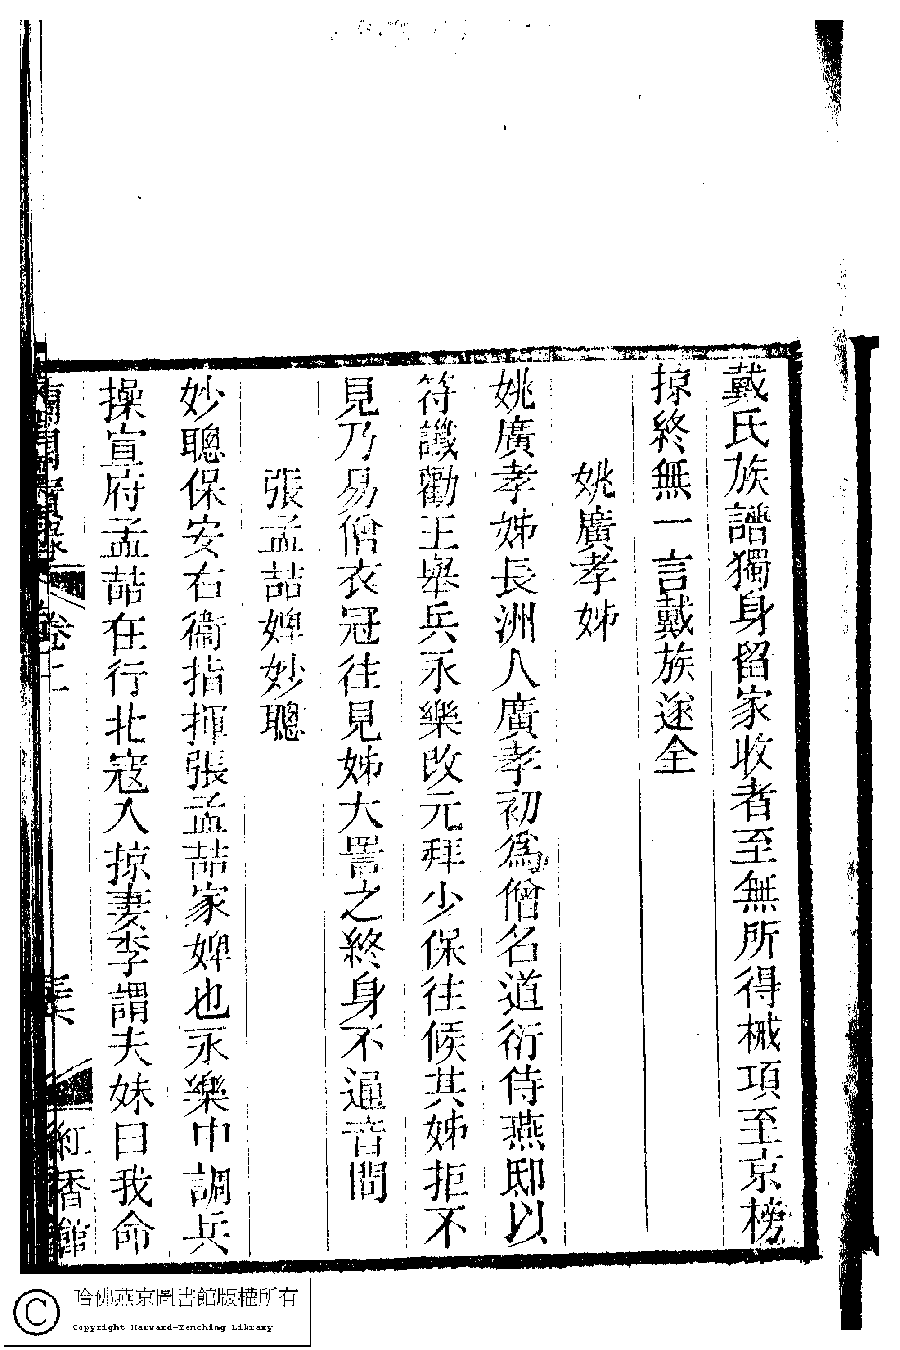 戴氏族譜獨身留家收者至無所得械項至京榜
掠終無一言戴族遂全
姚廣孝姊
姚廣孝姊長洲人廣孝初爲僧名道衍侍燕邸以
符讖勸王舉兵永樂改元拜少保往候其姊拒不
見乃易僧衣冠往見姊大詈之終身不通音問
張孟喆婢妙聰
妙聰保安右衞指揮張孟喆家婢也永樂中調兵
操宣府孟喆在行北寇入掠妻李謂夫妹曰我命
蘭閨寶錄 卷二 紅香館
哈佛燕京圖書館版權所有
Copyright Harvard-Yenching Library